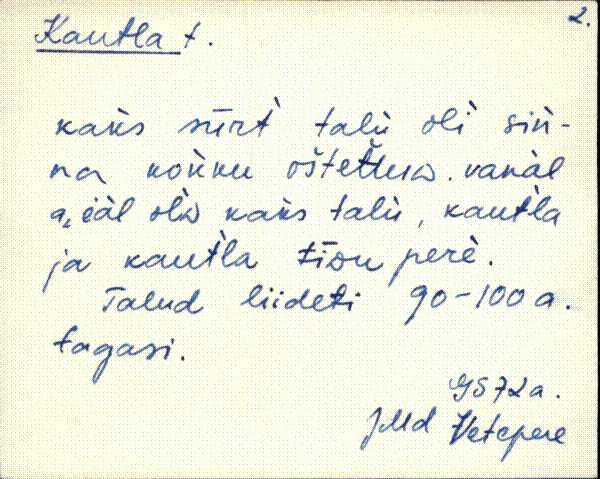 2.
Kautla t.
kaks sūrt talu oli sin-
na kokku oštettuD. vanal
a,äl oliD kaks talu, kautla
ja kautla tīsu pere.
Talud liideti 90-100 a.
tagasi.
1972 a.
J. Md Vetepere